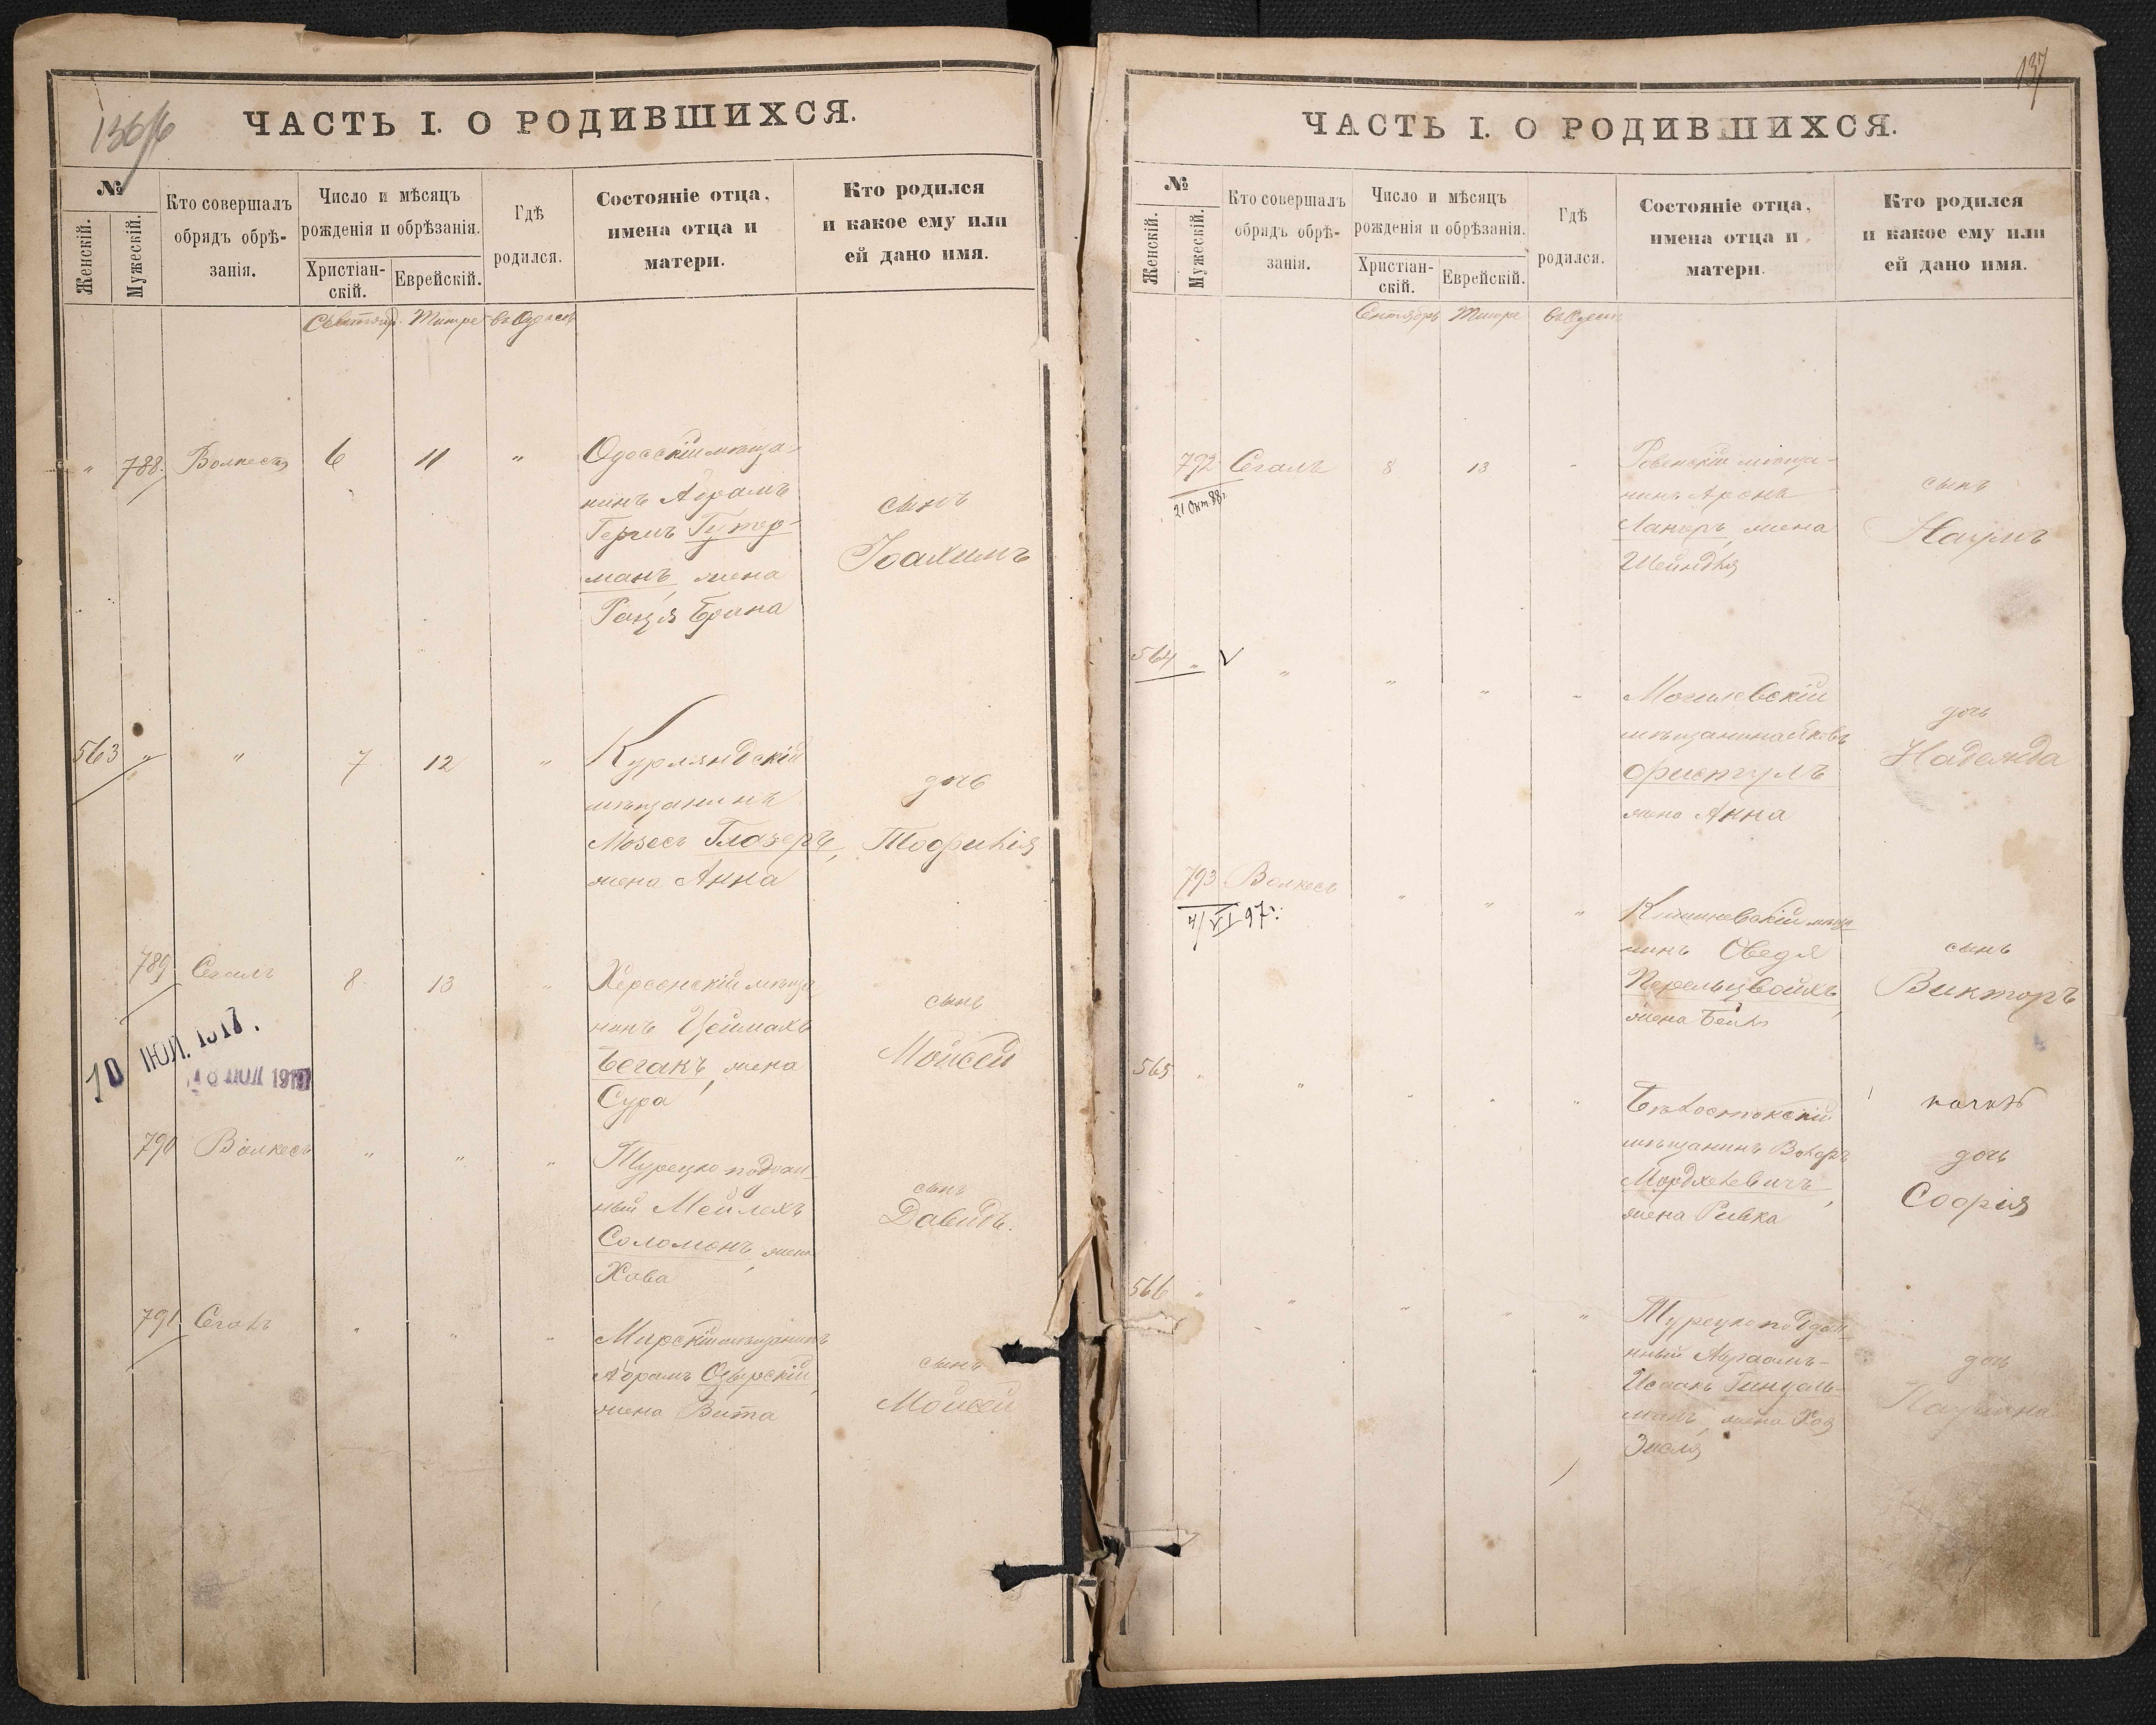 136/6
ЧАСТЬ I. О РОДИВШИХСЯ.
№
Женскій.
Мужескій.
Кто совершалъ
обрядъ обрѣ-
занія.
Число и мѣсяцъ
рожденія и обрѣзанія.
Христіан-
скій.
Еврейскій.
Гдѣ
родился.
Состояніе отца,
имена отца и
матери.
Кто родился
и какое ему или
ей дано имя.
Тишре въ Одессѣ
" 788. Волкесъ 6 11 " Одесскій мѣща-
нинъ Абрамъ
Гершъ Гутер-
манъ, жена
Брана
сынъ
Іоахимъ
563 " " 7 12 " Курляндскій
мѣщанинъ
Мозесъ Глазеръ,
жена Анна
дочь
789 Сегалъ 8 13 " Херсонскій мѣща
нинъ Цеймахъ
Бегакъ, жена
Сура
сынъ
Мойсей
10 ІЮЛ. 1917.
18 ІЮЛ 1917
790 Волкесъ " " " Турецко поддан-
ный Мейлехъ
Соломонъ, жена
Хова
сынъ
Давидъ.
791 Сегалъ " " " Мирскій мѣщанинъ
Абрамъ Озерскій,
жена Вита
сынъ
Мойсей
137
ЧАСТЬ I. О РОДИВШИХСЯ.
№
Женскій.
Мужескій.
Кто совершалъ
обрядъ обрѣ-
занія.
Число и мѣсяцъ
рожденія и обрѣзанія.
Христіан-
скій.
Еврейскій.
Гдѣ
родился.
Состояніе отца,
имена отца и
матери.
Кто родился
и какое ему или
ей дано имя.
Сентябрь Тишре въ Одессѣ
792 Сегалъ 8 13 " Ровенскій мѣща-
нинъ Аронъ
Ланеръ, жена
Шейндля
сынъ
Наумъ
21 Окт. 88 г.
564 " V " " " " Могилевскій
мѣщанинъ Яковъ
Фриспулъ
жена Анна
дочь
Надежда
793 Волкесъ " " " Кишиневскій мѣща
нинъ Оведя
Перельцвайхъ,
жена Бейла
сынъ
Викторъ
4/VI 97 г.
565 " " " " " Бѣлостокскій
мѣщанинъ
Мордхелевичъ,
жена Ривка
дочь
Софія
566 " " " " " Турецко поддан
ный Авраамъ-
Исаакъ Гингель-
манъ, жена Хая
Зисля
дочь